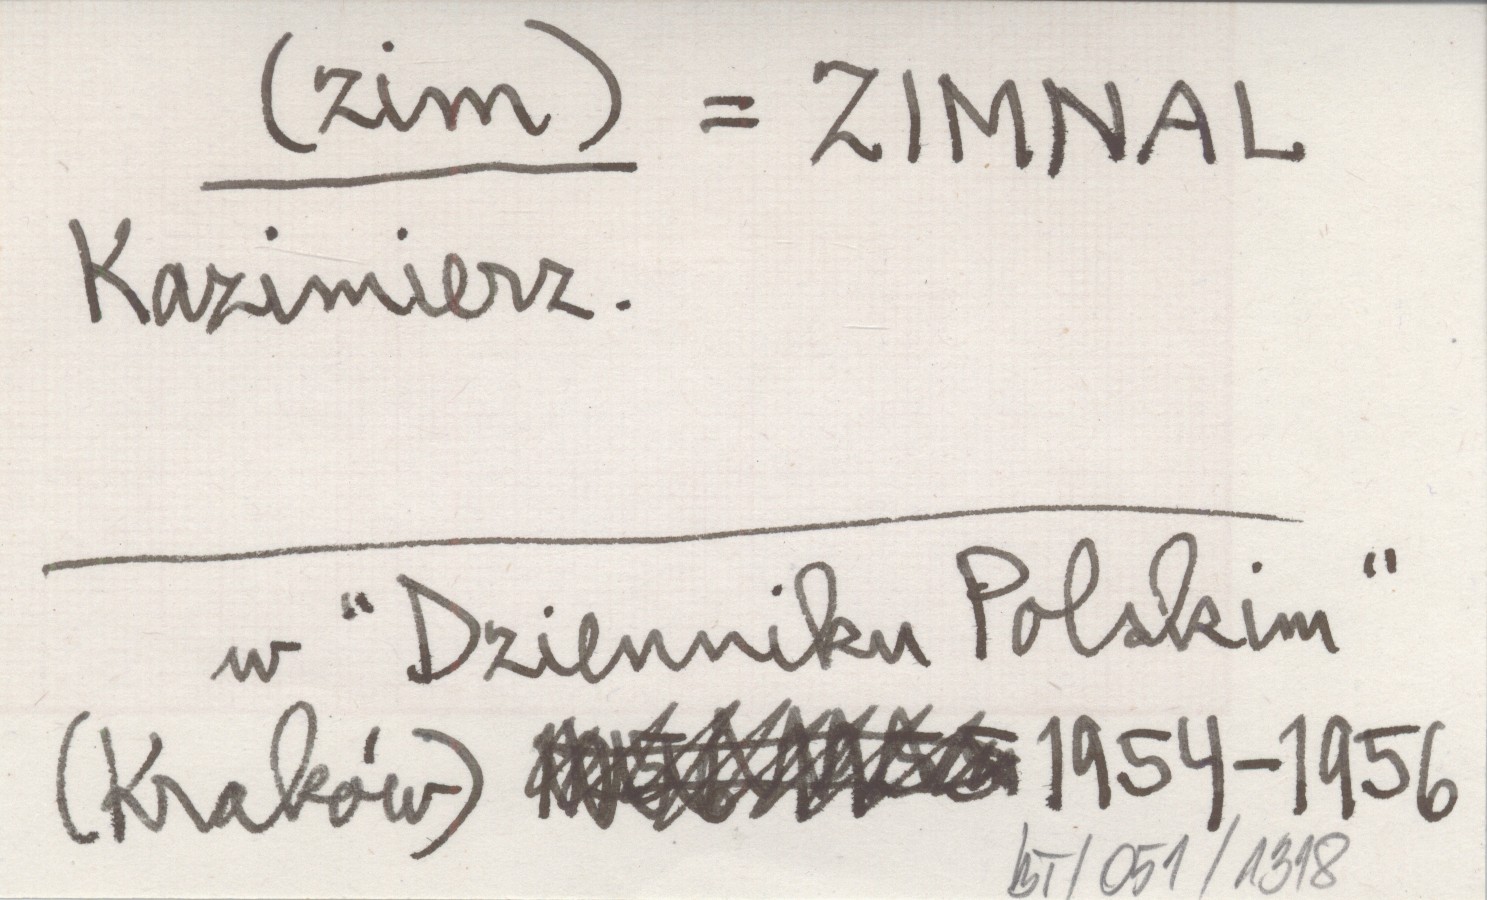 (zim) = ZIMNAL
Kazimierz.
w "Dzienniku Polskim"
(Kraków) 1954-1956
BT/051/1318